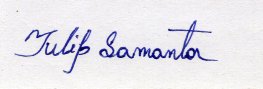 Tulip Samanta